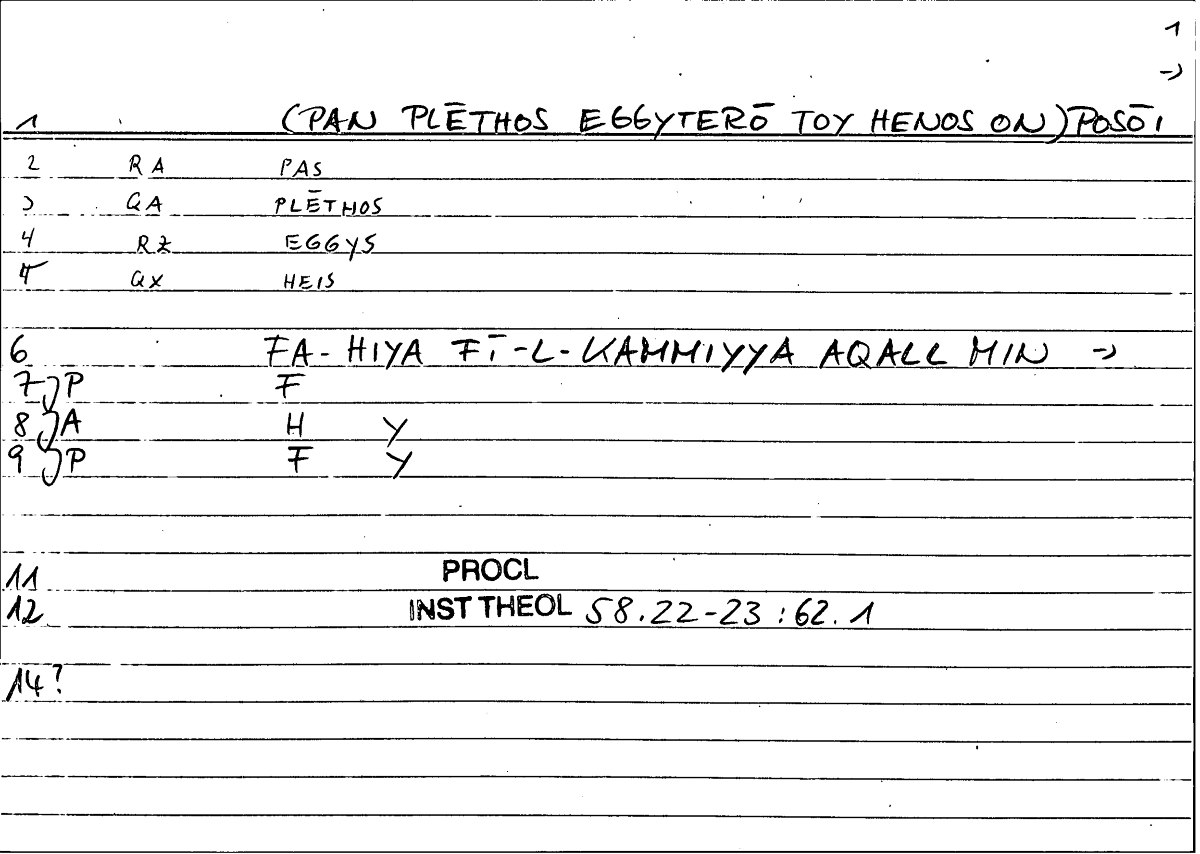 1
->
1 (PAN PLĒTHOS EGGYTERŌ TOY HENOS ON) POSŌI
2 RA PAS
3 QA PLĒTHOS
4 RZ EGGYS
5 QX HEIS
6 FA-HIYA FĪ-L-KAMMIYYA AQALL MIN ->
7 P F
8 A H Y
9 P F Y
11 PROCL
12 INST THEOL 58.22-23 : 62.1
14?